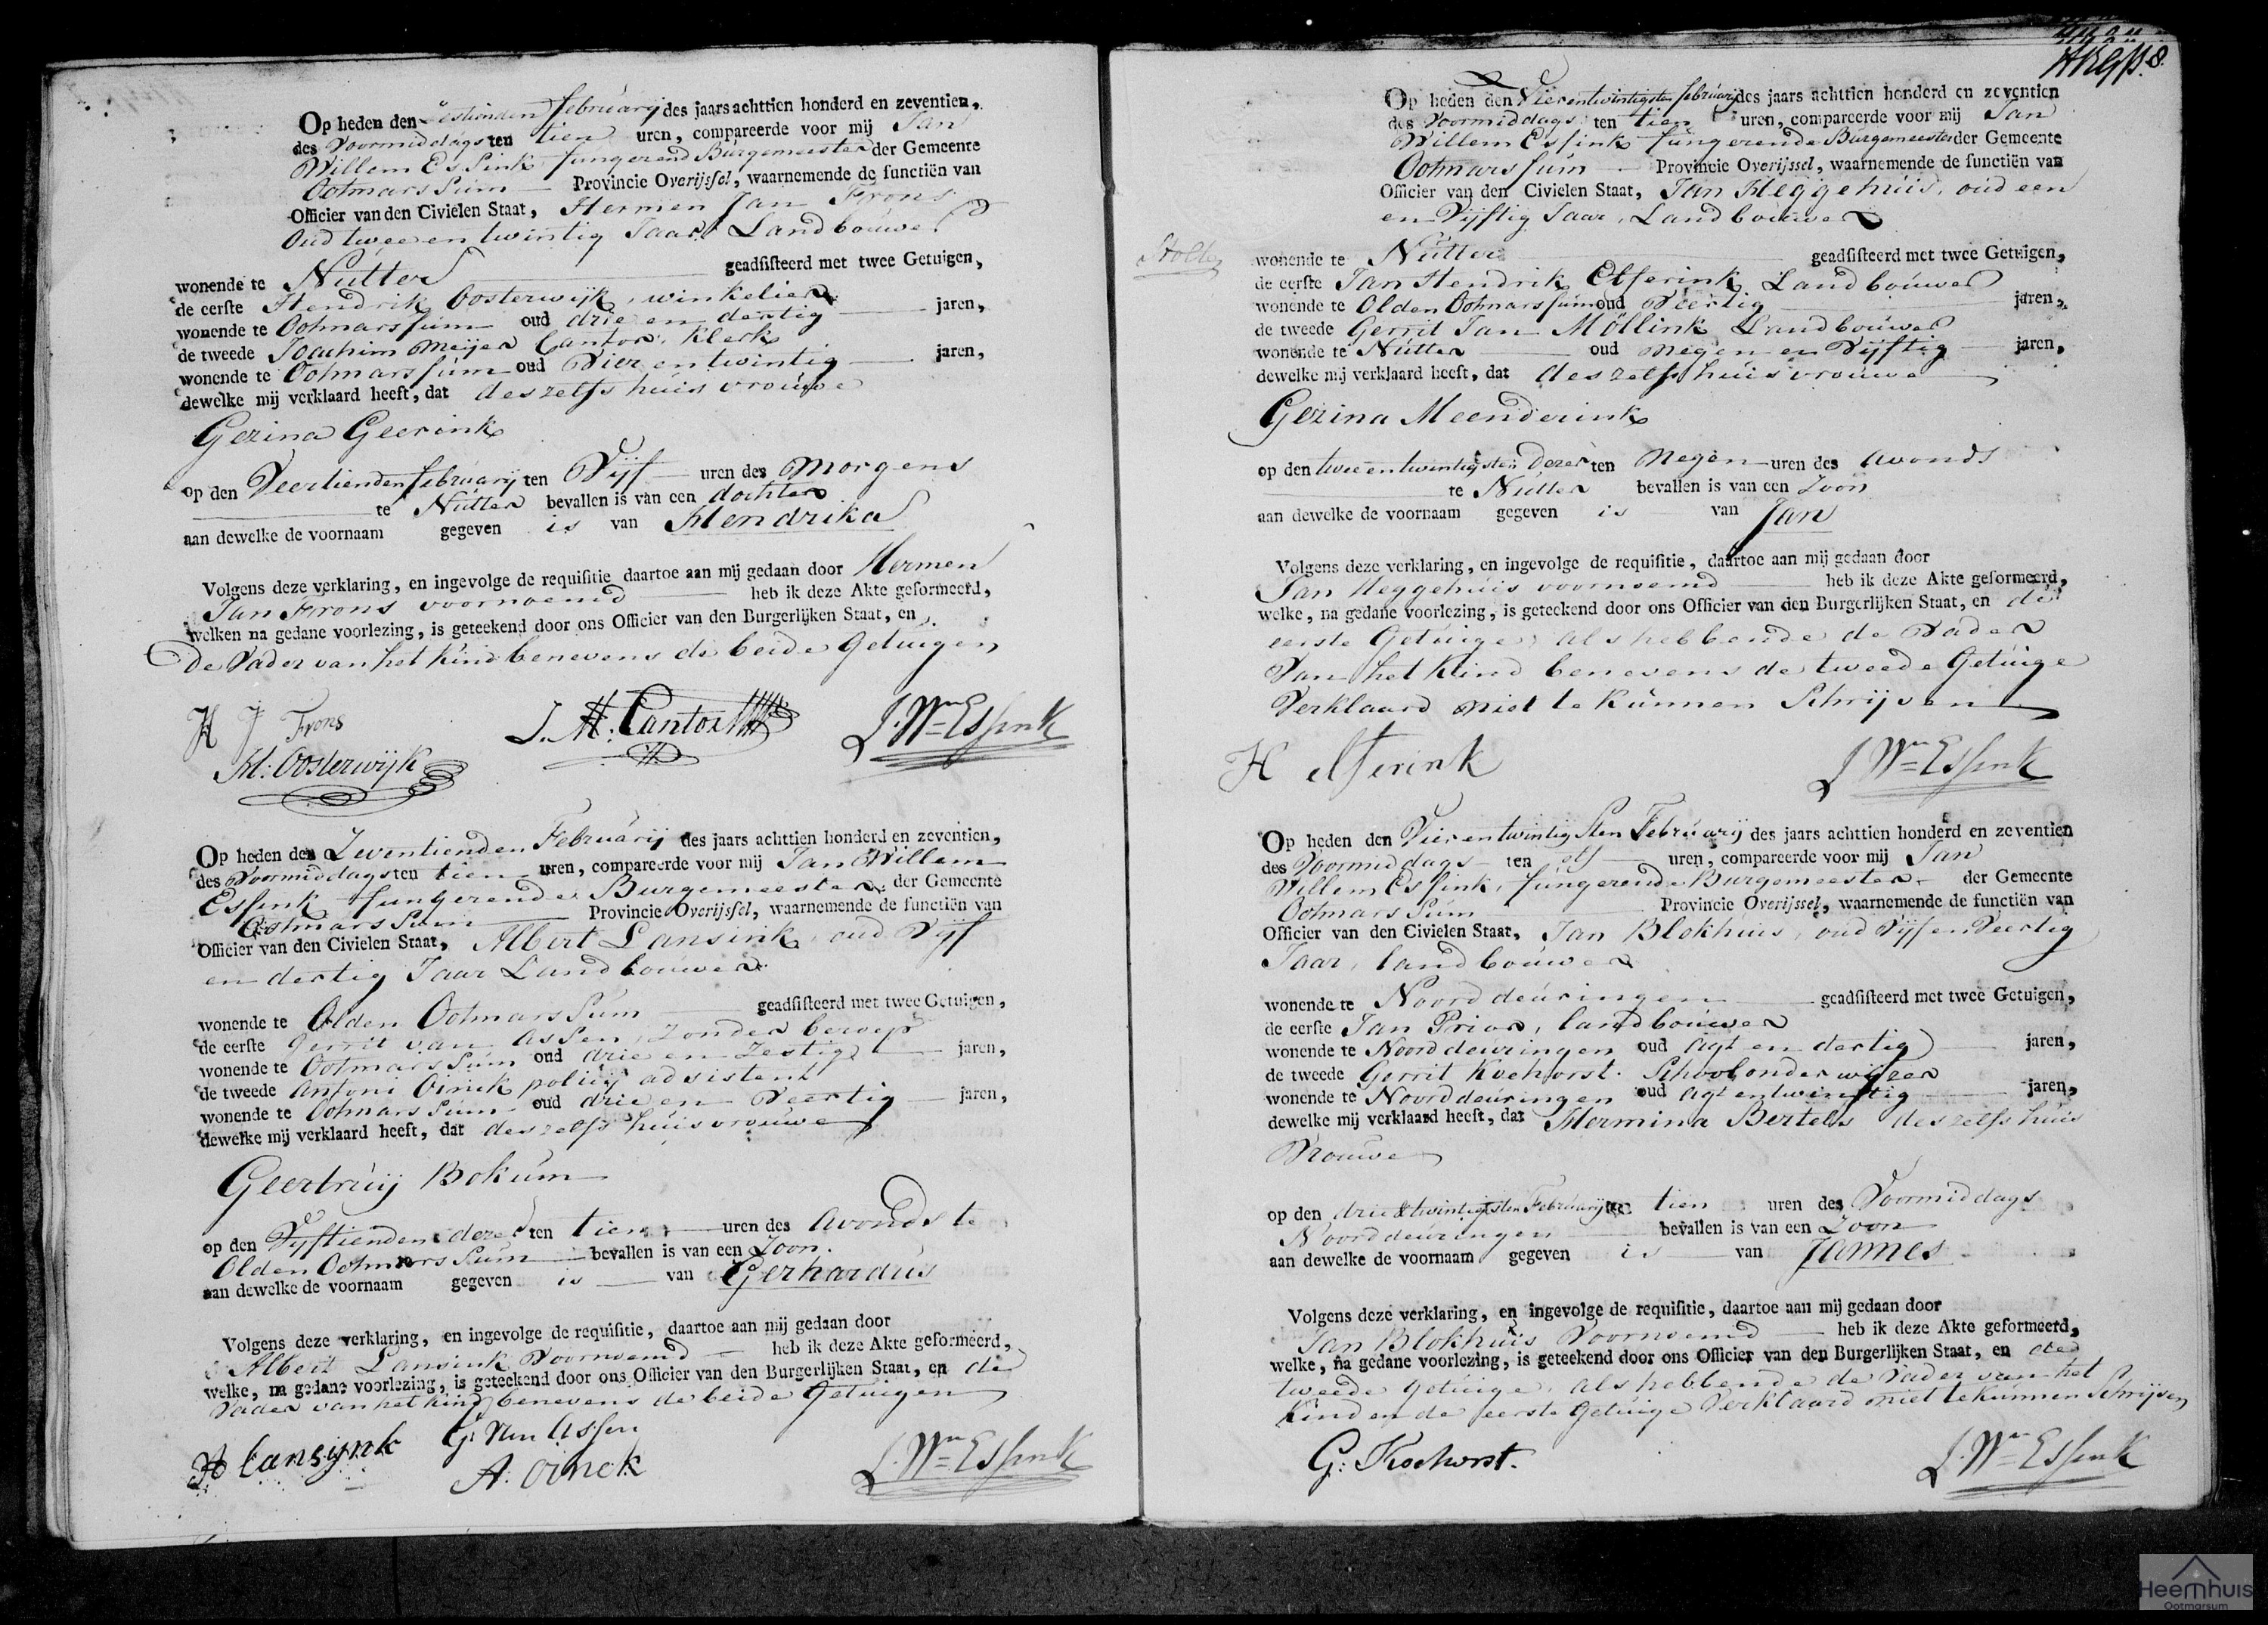 Op heden den Sestienden februarij des jaars achttien honderd en zeventien,
des Voormiddags ten tien uren, compareerde voor mij Jan
Willem Essink fungerend Burgemeester der Gemeente
Ootmarssum Provincie Overijssel, waarnemende de functiën van
Officier van den Civielen Staat, Hermen Jan Frons
Oud twee en twintig Jaar Landbouwer
wonende te Nutter geadsisteerd met twee Getuigen,
de eerste Hendrik Oosterwijk, winkelier
wonende te Ootmarssum oud drie en dertig jaren,
de tweede Joachim Meijer Cantor, Klerk
wonende te Ootmarssum oud Vier en twintig jaren,
dewelke mij verklaard heeft, dat deszelfs huisvrouwe
Gezina Geerink
op den Veertienden februarij ten Vijf uren des Morgens
te Nutter bevallen is van een dochter
aan dewelke de voornaam gegeven is van Hendrika
Volgens deze verklaring, en ingevolge de requisitie daartoe aan mij gedaan door Hermen
Jan Frons voornoemd heb ik deze Akte geformeerd,
welken na gedane voorlezing, is geteekend door ons Officier van den Burgerlijken Staat, en
de Vader van het Kind benevens de beide Getuigen
H J Frons
J. M. Cantor
J. Wm Essink
H: Oosterwijk
Op heden den Zeventienden Februarij des jaars achttien honderd en zeventien,
des Voormiddags ten tien uren, compareerde voor mij Jan Willem
Essink fungerende Burgemeester der Gemeente
Ootmarssum Provincie Overijssel, waarnemende de functiën van
Officier van den Civielen Staat, Albert Lansink, oud Vijf
en dertig Jaar Landbouwer
wonende te Olden Ootmarssum geadsisteerd met twee Getuigen,
de eerste Gerrit van Assen, Zonder beroep
wonende te Ootmarssum oud drie en Zestig jaren,
de tweede Antoni Oinck policij adsistent
wonende te Ootmarssum oud drie en Veertig jaren,
dewelke mij verklaard heeft, dat deszelfs huisvrouwe
Geertruij Bokum
op den Vijftienden dezer ten tien uren des Avonds te
Olden Ootmarssum bevallen is van een Zoon.
aan dewelke de voornaam gegeven is van Gerhardus
Volgens deze verklaring, en ingevolge de requisitie, daartoe aan mij gedaan door
Albert Lansink Voornoemd heb ik deze Akte geformeerd,
welke, na gedane voorlezing, is geteekend door ons Officier van den Burgerlijken Staat, en de
Vader van het Kind benevens de beide Getuigen
A Lansijnk
G. Van Assen
A. Oinck
J. Wm Essink
Op heden den Vierentwintigsten februarij des jaars achttien honderd en zeventien
des Voormiddags ten tien uren, compareerde voor mij Jan
Willem Essink fungerende Burgemeester der Gemeente
Ootmarssum Provincie Overijssel, waarnemende de functiën van
Officier van den Civielen Staat, Jan Heggehuis, oud een
en Vijftig Jaar, Landbouwer
wonende te Nutter geadsisteerd met twee Getuigen,
de eerste Jan Hendrik Elferink Landbouwer
wonende te Olden Ootmarssum oud Veertig jaren,
de tweede Gerrit Jan Möllink Landbouwer
wonende te Nutter oud Negen en Vijftig jaren,
dewelke mij verklaard heeft, dat deszelfs huisvrouwe
Gezina Meenderink
op den twee en twintigsten Dezer ten Negen uren des Avonds
te Nutter bevallen is van een Zoon
aan dewelke de voornaam gegeven is van Jan
Volgens deze verklaring, en ingevolge de requisitie, daartoe aan mij gedaan door
Jan Heggehuis voornoemd heb ik deze Akte geformeerd,
welke, na gedane voorlezing, is geteekend door ons Officier van den Burgerlijken Staat, en de
eerste Getuige, als hebbende de Vader
Van het Kind benevens de tweede Getuige
Verklaard niet te Kunnen Schrijven
H Elferink
J. Wm Essink
Op heden den Vierentwintigsten Februarij des jaars achttien honderd en zeventien
des Voormiddags ten elf uren, compareerde voor mij Jan
Willem Essink, fungerende Burgemeester der Gemeente
Ootmarssum Provincie Overijssel, waarnemende de functiën van
Officier van den Civielen Staat, Jan Blokhuis, oud Vijf en Veertig
Jaar, landbouwer
wonende te Noorddeuringen geadsisteerd met twee Getuigen,
de eerste Jan Prior, landbouwer
wonende te Noorddeuringen oud Agt en dertig jaren,
de tweede Gerrit Koehorst Schoolonderwijzer
wonende te Noorddeuringen oud Agt en twintig jaren,
dewelke mij verklaard heeft, dat Hermina Bertels deszelfs huis
Vrouwe
op den drie & twintigsten Februarij ten tien uren des Voormiddags
Noorddeuringen bevallen is van een Zoon
aan dewelke de voornaam gegeven is van Jannes
Volgens deze verklaring, en ingevolge de requisitie, daartoe aan mij gedaan door
Jan Blokhuis Voornoemd heb ik deze Akte geformeerd,
welke, na gedane voorlezing, is geteekend door ons Officier van den Burgerlijken Staat, en de
tweede Getuige, als hebbende de Vader van het
Kind en de eerste Getuige Verklaard niet te Kunnen Schrijven
G: Koehorst.
J. Wm Essink
Heemhuis
Ootmarsum